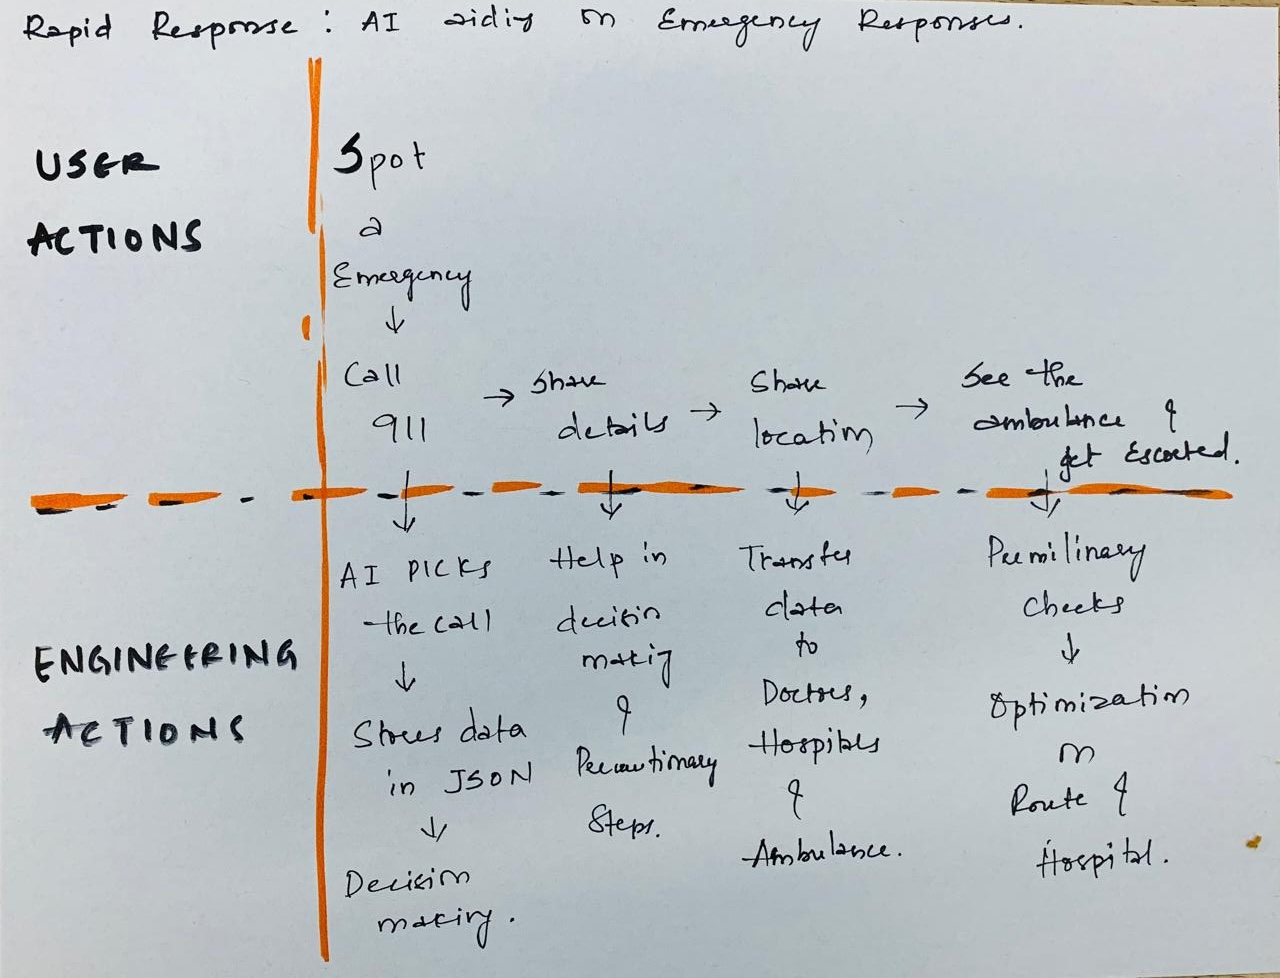 Rapid Response : AI aiding on Emergency Responses.
USER
ACTIONS
Spot
a
Emergency
↓
Call
911
→ Share
details
→ Share
location
→ See the
ambulance &
get Escorted.
ENGINEERING
ACTIONS
AI PICKS
the call
↓
Stores data
in JSON
↓
Decision
making.
Help in
decision
making
&
Precautionary
Steps.
Transfer
data
to
Doctors,
Hospitals
&
Ambulance.
Premilinary
Checks
↓
Optimization
on
Route &
Hospital.